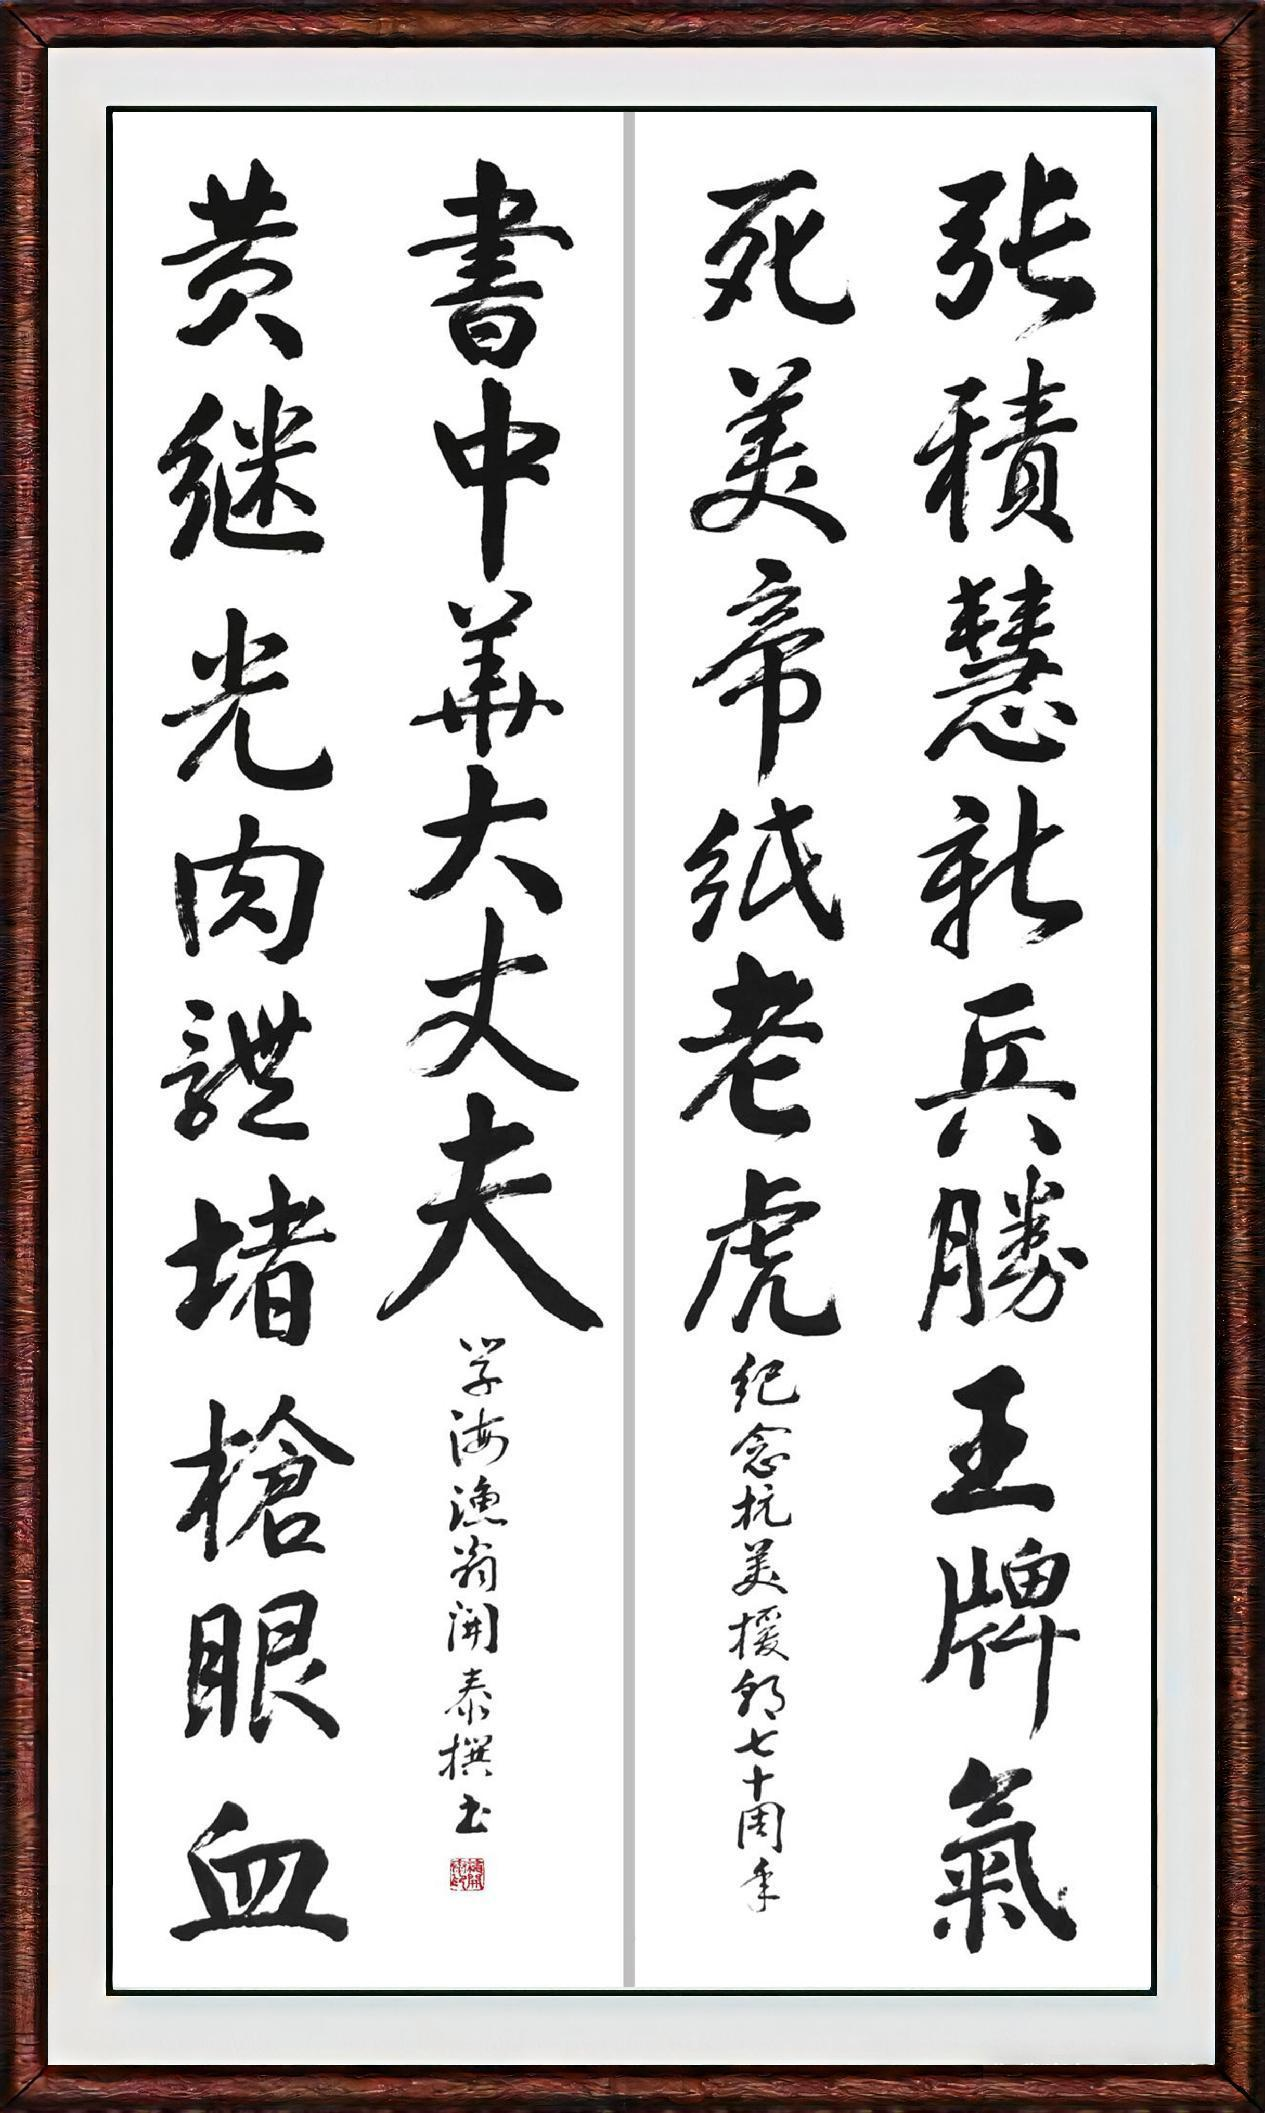 张積慧新兵勝王牌氣
死美帝纸老虎
纪念抗美援朝七十周年
黄继光肉體堵槍眼血
書中華大丈夫
学海渔翁開泰撰书